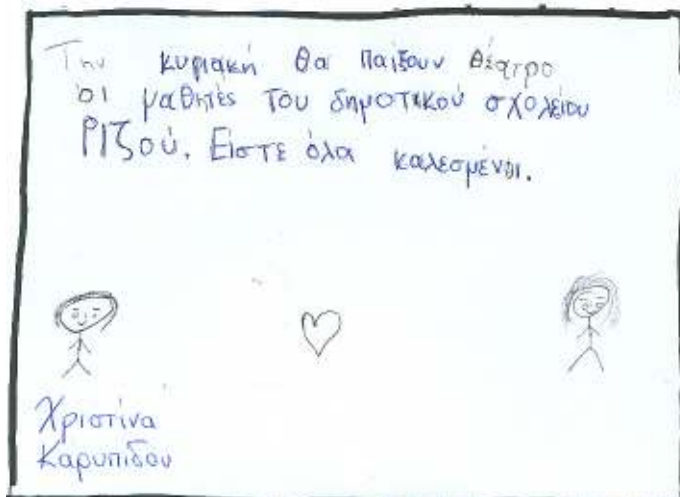 Την κυριακή θα παίξουν θέατρο
οι μαθητές του δημοτικού σχολείου
Ριζού. Είστε όλοι καλεσμένοι.
Χριστίνα
Καρυπίδου